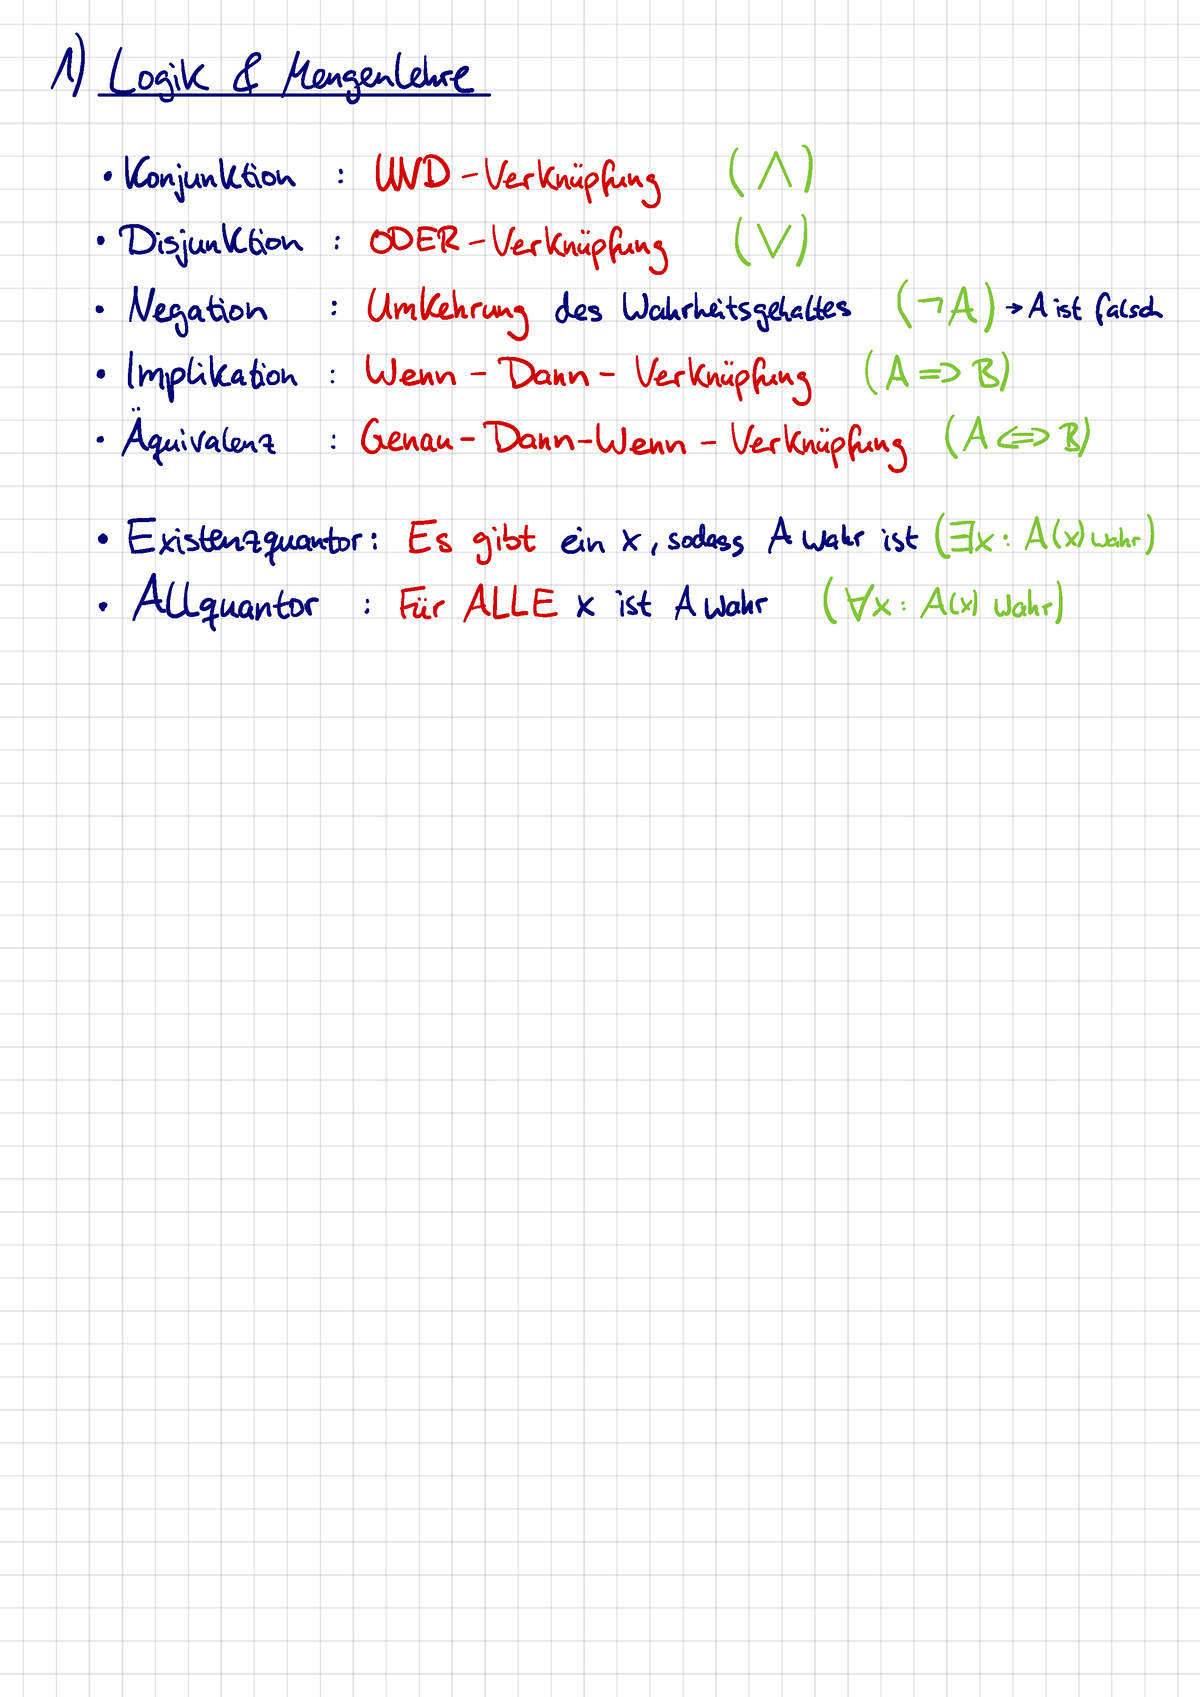 1) Logik & Mengenlehre
• Konjunktion : UND-Verknüpfung (∧)
• Disjunktion : ODER-Verknüpfung (∨)
• Negation : Umkehrung des Wahrheitsgehaltes (¬A) → A ist falsch
• Implikation : Wenn-Dann-Verknüpfung (A => B)
• Äquivalenz : Genau-Dann-Wenn-Verknüpfung (A <=> B)
• Existenzquantor: Es gibt ein x, sodass A wahr ist (∃x: A(x) wahr)
• Allquantor : Für ALLE x ist A wahr (∀x: A(x) wahr)